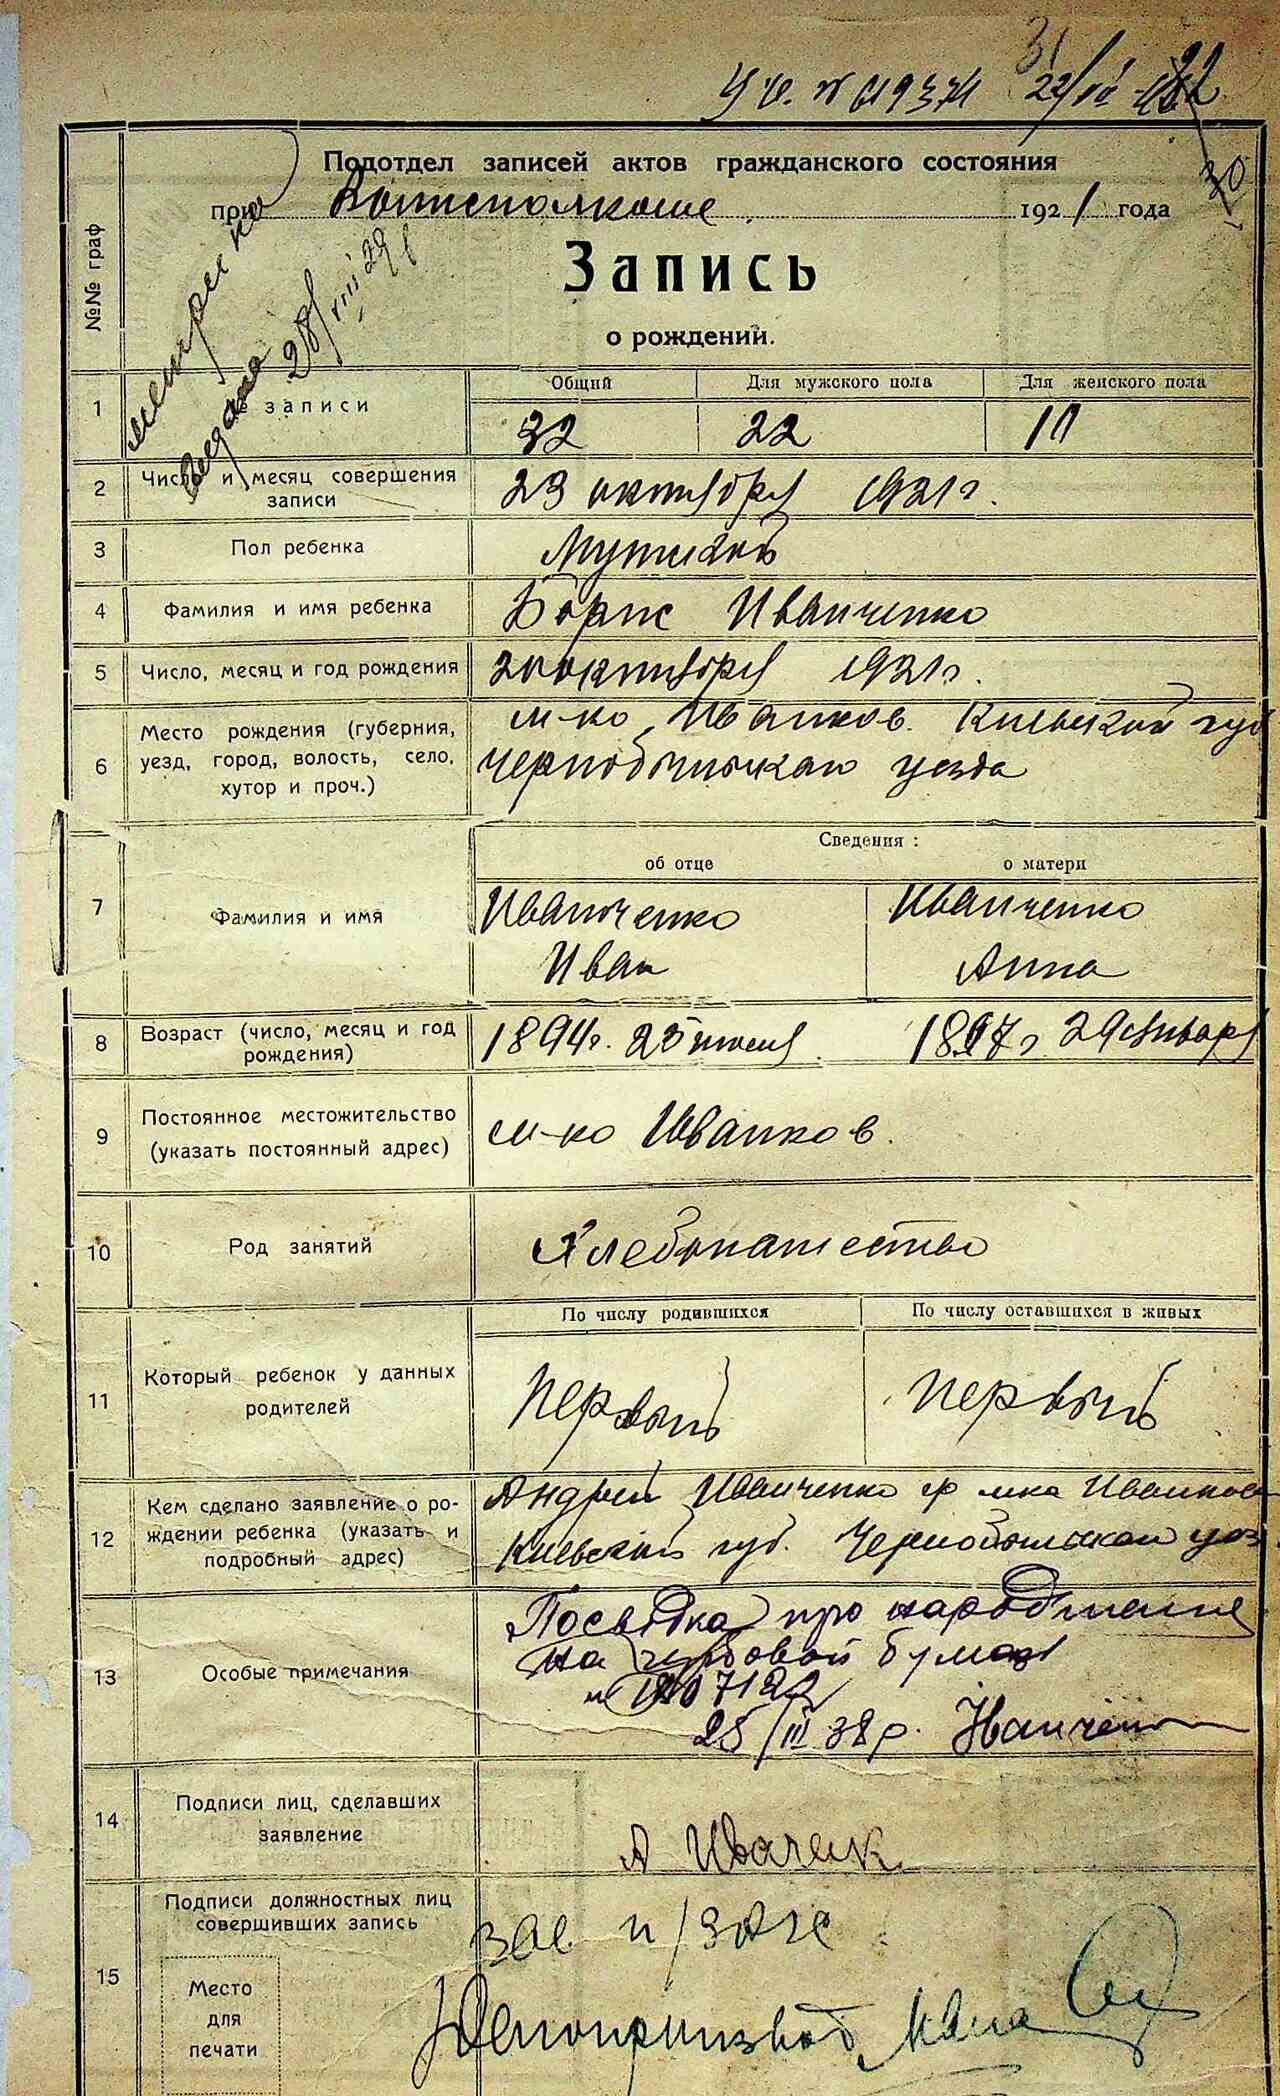 31
22/IV
30
Подотдел записей актов гражданского состояния
при Волисполкоме 1921 года
Запись
о рождении.
метрика
выдана 28/VIII 29
№№ граф
Общий Для мужского пола Для женского пола
1 № записи 32 22 10
2 Число и месяц совершения
записи
23 октября 1921 г.
3 Пол ребенка Мужской
4 Фамилия и имя ребенка Борис Иванченко
5 Число, месяц и год рождения 20 октября 1921 г.
6 Место рождения (губерния,
уезд, город, волость, село,
хутор и проч.)
м-ко Иванков. Киевской губ
Чернобыльского уезда
Сведения:
об отце о матери
7 Фамилия и имя
Иванченко Иванченко
Иван Анна
8 Возраст (число, месяц и год
рождения)
1894 г. 1897 г 29 января
9 Постоянное местожительство
(указать постоянный адрес)
м-ко Иванков.
10 Род занятий Хлебопашество
По числу родившихся По числу оставшихся в живых
11 Который ребенок у данных
родителей
Первый Первый
12 Кем сделано заявление о ро-
ждении ребенка (указать и
подробный адрес)
Андрей Иванченко гр мка Иванков
Киевской губ. Чернобыльского уез
13 Особые примечания
Посвідка про народження
на гербовой бумаге
25/III 38 р. Іванченко
14 Подписи лиц, сделавших
заявление
А Иваченк
15 Подписи должностных лиц
совершивших запись
Зав п/загс
Место
для
печати
Делопроизвод